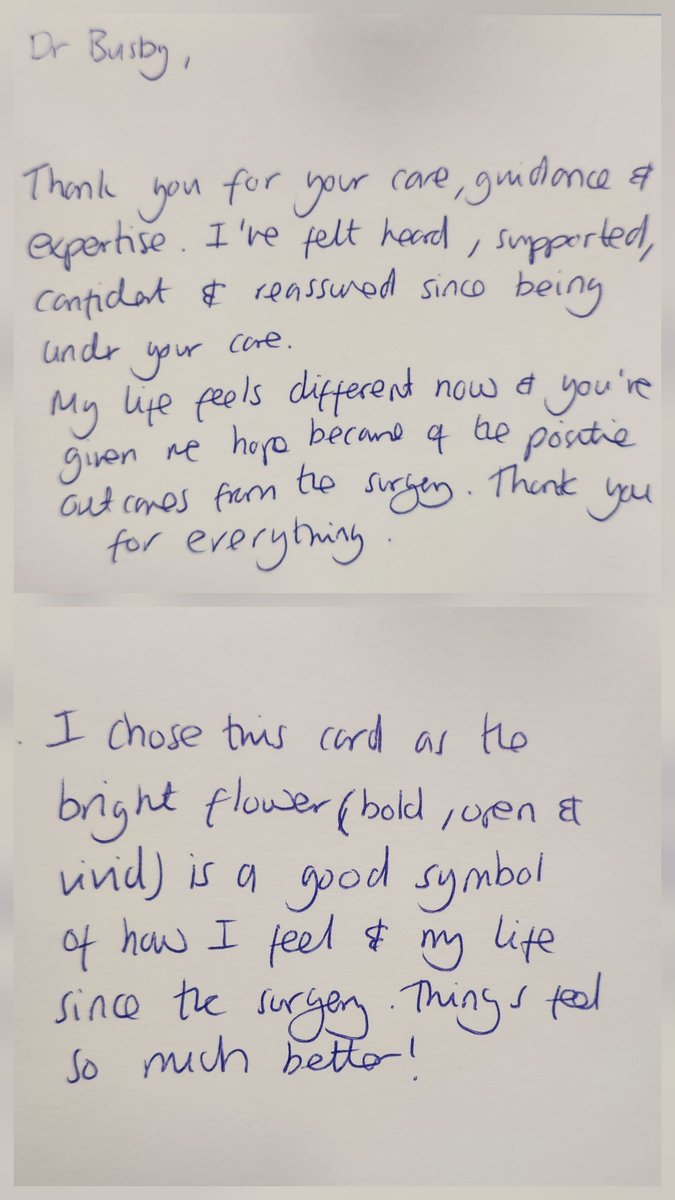 Dr Busby,
Thank you for your care, guidance &
expertise. I've felt heard, supported,
confident & reassured since being
under your care.
My life feels different now & you're
given me hope because of the positive
outcomes from the surgery. Thank you
for everything.
I chose this card as the
bright flower (bold, open &
vivid) is a good symbol
of how I feel & my life
since the surgery. Things feel
so much better!